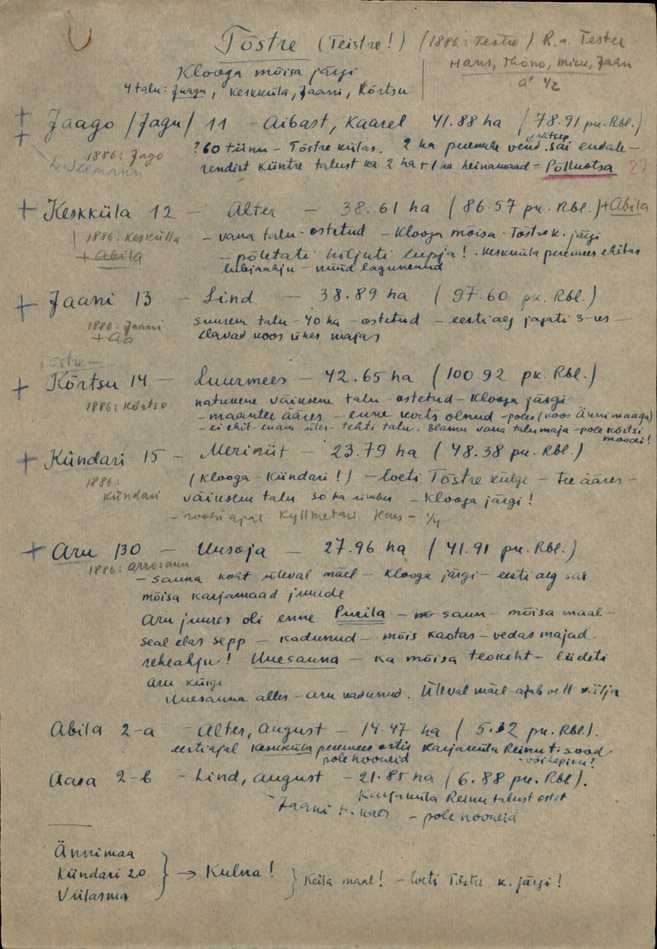 Tõstre (Teistre!) (1886: Testre) R.a. Tester
Hans, Thono, Mick, Jaan
a' 1/2
Klooga mõisa järgi
4 talu: Jaagu, Keskküla, Jaani, Kõrtsu
Jaago /Jagu/ 11 - Aibast, Kaarel 41.88 ha (78.91 pu. Rbl.)
1886: Jago
? 60 tiinu - Tõstre külas. 2 ha peremehe vend sai endale -
rendist Küntre talust ka 2 ha + 1 ha heinamaad = Põlluotsa
Keskküla 12 - Alter - 38.61 ha (86.57 pu. Rbl.) + Abila
1886: Keskülla
+ Abila
- vana talu - ostetud - Klooga mõisa - Tõstre k. järgi
- põletati hiljuti lupja! - Keskküla peremees ehitas
lubjaahju - nüüd lagunenud
Jaani 13 - Lind - 38.89 ha (97.60 pu. Rbl.)
1886: Jaani
+ Aa
suurem talu - 40 ha - ostetud - eesti aeg jagati 3-es -
elavad koos ühes majas
Tõstre -
Kõrtsu 14 - Suurmees - 42.65 ha (100.92 pu. Rbl.)
1886: Kõstso
natukene väiksem talu - ostetud - Klooga järgi
- maantee ääres - enne korts olnud - poles (koos Ännimaaga)
- ei ehit. enam üles - tehti talu. elamu vana talumaja - pole kõrtsi
moodi!
Kündari 15 - Meriniit - 23.79 ha (48.38 pu. Rbl.)
1886:
Kündari
(Klooga - Kündari!) - loeti Tõstre külge - tee ääres -
väiksem talu 30 ha ümber - Klooga järgi!
- rootsi ajal Kyllmetas Hans - 1/4
Aru 130 - Uusoja - 27.96 ha (41.91 pu. Rbl.)
1886: Arrosaun
- sauna koht üleval mäel - Klooga järgi - eesti aeg sai
mõisa karjamaad juurde
Aru juures oli enne Purila - saun - mõisa maal -
seal elas sepp - kadunud - mõis kaotas - vedas majad
reheahju! Uuesauna - ka mõisa teokoht - liideti
Aru külge
Uuesauna alles - Aru kadunud. Üleval mäel - ajab vett välja
Abila 2-a - Alter, August - 14.47 ha (5.62 pu. Rbl.).
eestiajal Keskküla peremees ostis Karjaküla Reinu t. sood
pole hooneid - võilepiku!
Aasa 2-b - Lind, August - 21.85 ha (6.88 pu. Rbl.).
Karjaküla Reinu talust ostet
- Jaani t. kaes - pole hooneid
Ännimaa
Kündari 20
Viilasma
→ Kulna!
Keila maal! - loeti Tõstre k. järgi!